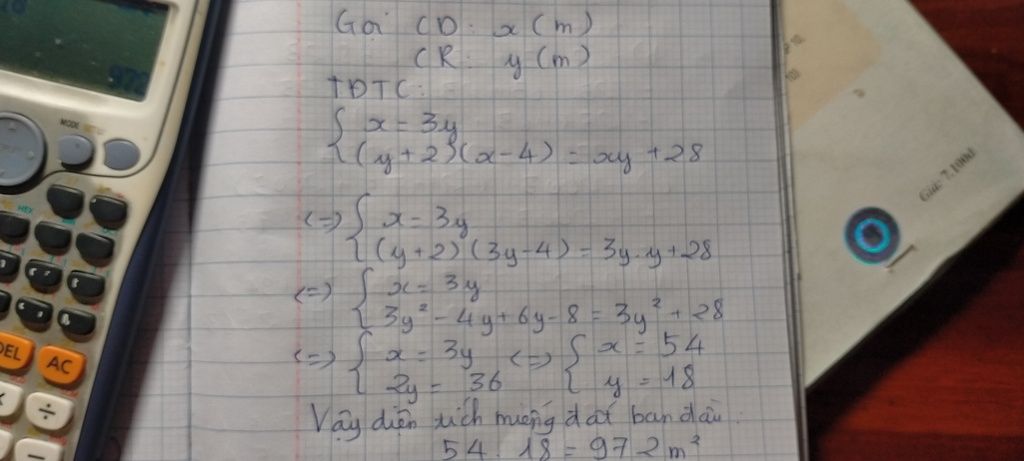 Gọi CD: x (m)
CR: y (m)
TĐTC:
{ x = 3y
{ (y+2)(x-4) = xy + 28
<=> { x = 3y
{ (y+2)(3y-4) = 3y.y+28
<=> { x = 3y
{ 3y² - 4y + 6y - 8 = 3y² + 28
<=> { x = 3y <=> { x = 54
{ 2y = 36 { y = 18
Vậy diện tích miếng đất ban đầu:
54 . 18 = 972 m²
MODE
HEX
DEL AC
÷
Giá: 7.100đ